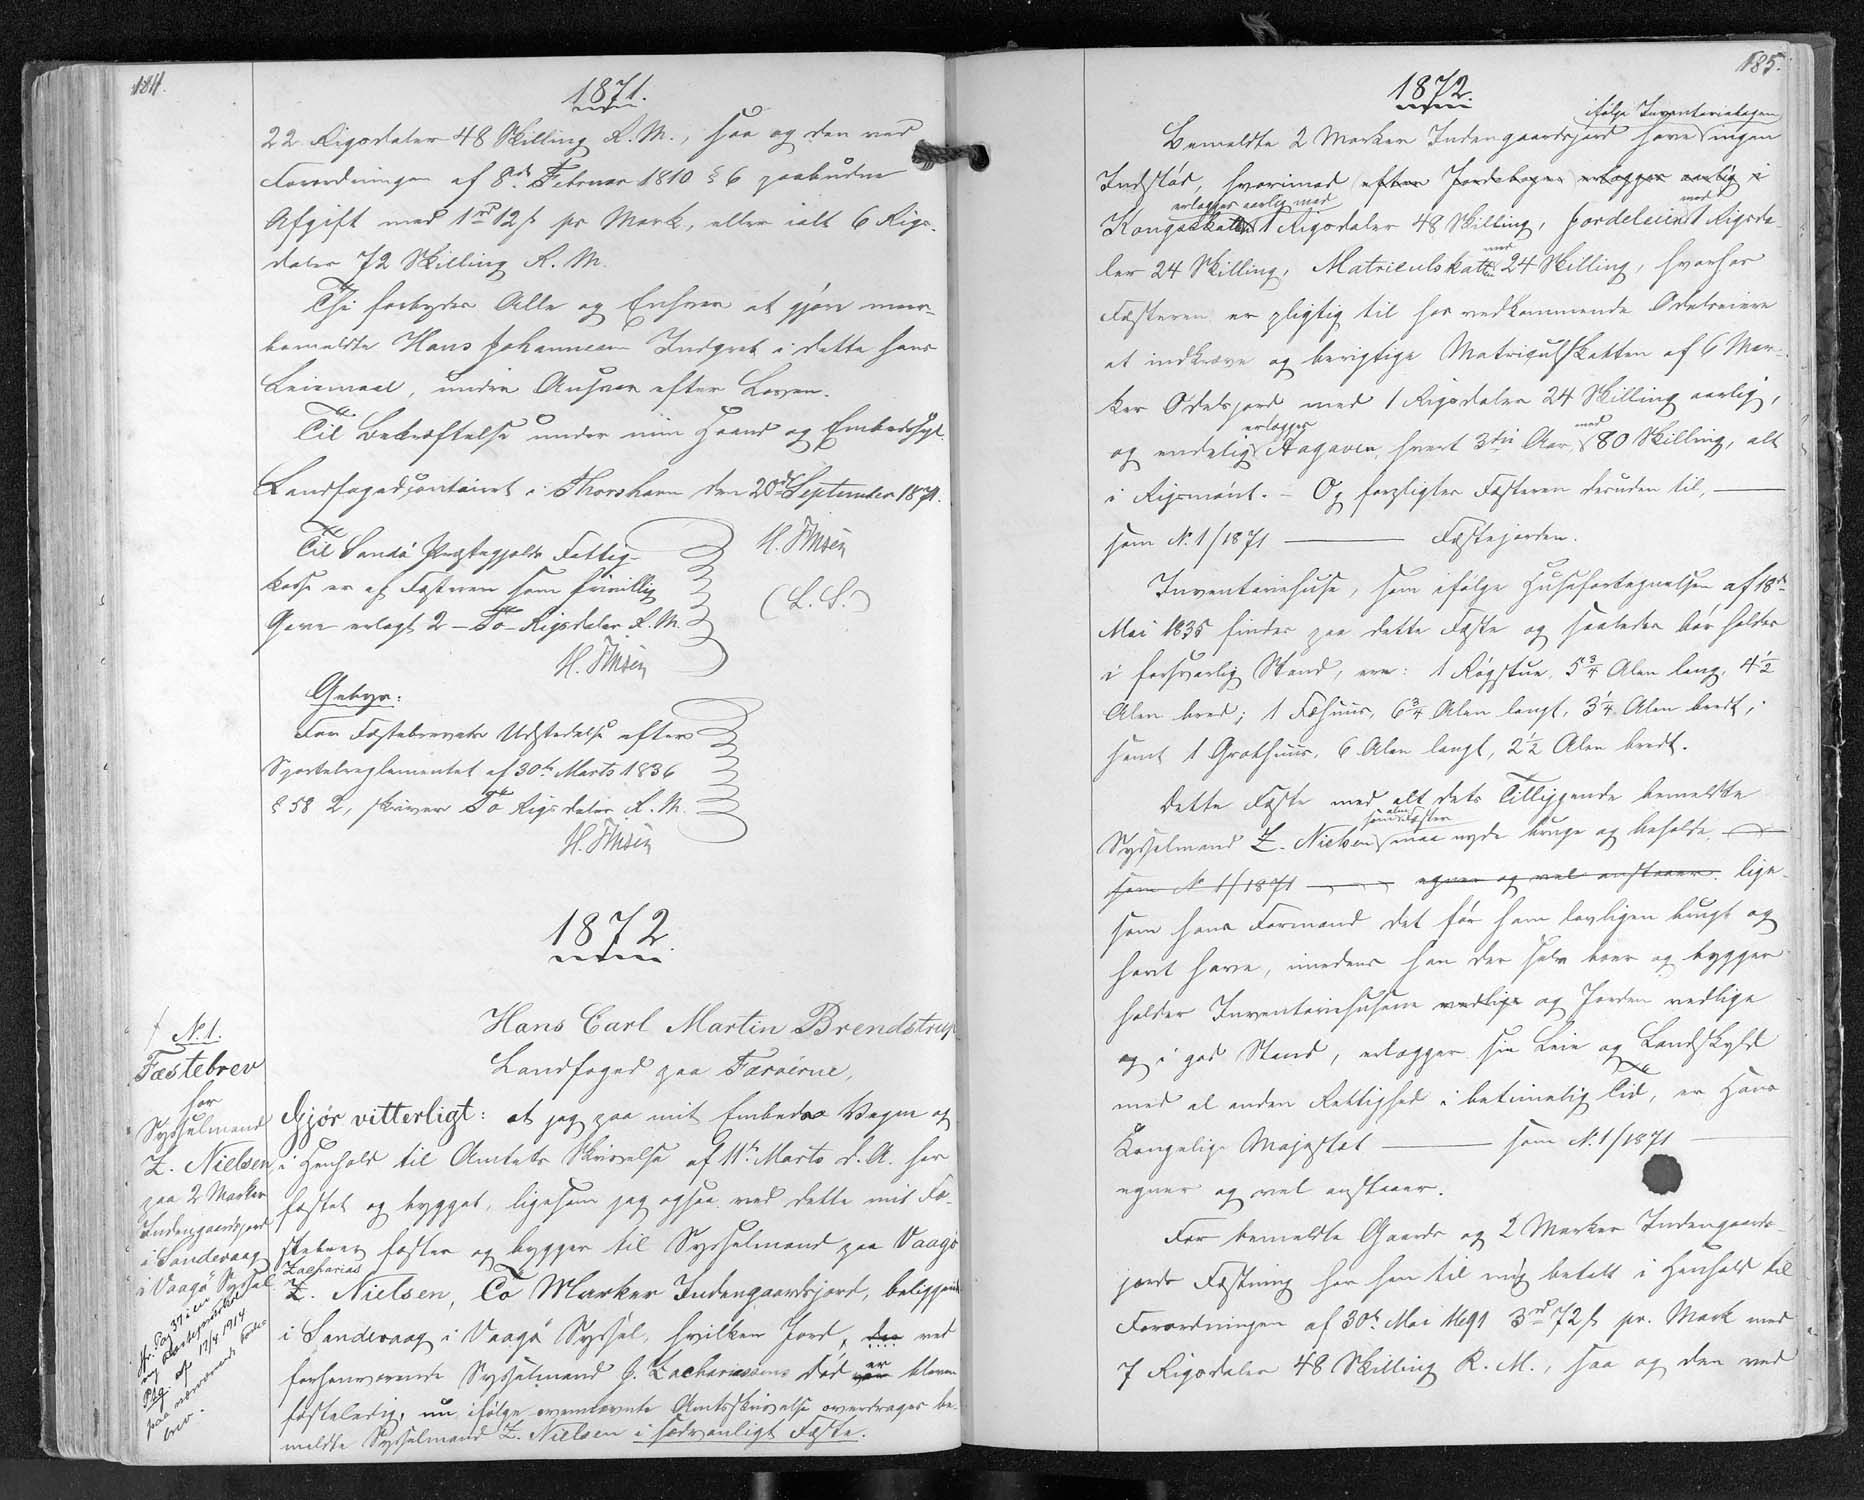 184.
1871.
22 Rigsdaler 48 Skilling R. M., saa og den ved
Forordningen af 8de Februar 1810 § 6 paabudne
Afgift med 1 rd 12 s pr Mark, eller ialt 6 Rigs-
daler 72 Skilling R. M.
Thi forbydes Alle og Enhver at gjøre meer-
bemeldte Hans Johannesen Indgreb i dette hans
Leiemaal, under Ansvar efter Loven.
Til Bekræftelse under min Haand og Embedssegl.
Landfogedcontoiret i Thorshavn den 20de September 1871.
H. Finsen
(L. S.)
Til Sandø Præstegjelds Fattig-
kasse er af Fæsteren som frivillig
Gave erlagt 2 - To - Rigsdaler R. M.
H. Finsen
Gebyr:
For Fæstebrevets Udstedelse efter
Sportelreglementet af 30te Marts 1836
§ 58 2, skriver To Rigsdaler R. M.
H. Finsen
1872.
No 1.
Fæstebrev
for
Sysselmand
Z. Nielsen
paa 2 Marker
Indengaardsjord
i Sandevaag
i Vaagø Syssel.
Hans Carl Martin Brendstrup
Landfoged paa Færøerne,
Gjør vitterligt: at jeg paa mit Embeds Vegne og
i Henhold til Amtets Skrivelse af 11te Marts d. A. har
fæstet og bygget, ligesom jeg ogsaa ved dette mit Fæ-
stebrev fæster og bygger til Sysselmand paa Vaagø
Zacharias
Z. Nielsen, To Marker Indengaardsjord, beliggende
i Sandevaag i Vaagø Syssel, hvilken Jord, der ved
forhenværende Sysselmand J. Zachariasens Død var er bleven
fæsteledig, nu ifølge ovennævnte Amtsskrivelse overdrages be-
meldte Sysselmand Z. Nielsen i sædvanligt Fæste.
185.
1872.
ifølge Inventarielagen
Bemeldte 2 Marker Indengaardsjord have ingen
Indstød, hvorimod efter Jordebogen erlægger aarlig i
erlægges aarlig med
Kongsskat 1 Rigsdaler 48 Skilling, Jordeleien med 1 Rigsda-
ler 24 Skilling, Matriculskatten med 24 Skilling, hvorhos
Fæsteren er pligtig til hos vedkommende Odelseiere
at indkræve og berigtige Matriculskatten af 6 Mar-
ker Odelsjord med 1 Rigsdaler 24 Skilling aarlig,
og endelig erlægges Aagaven hvert 3die Aar med 80 Skilling, alt
i Rigsmønt. - Og forpligtes Fæsteren desuden til,
som No 1/1871 Fæstejorden.
Inventariehuse, som ifølge Huusfortegnelsen af 18de
Mai 1835 findes paa dette Fæste og saaledes bør holdes
i forsvarlig Stand, ere: 1 Røgstue, 5 3/4 Alen lang, 4 1/2
Alen bred; 1 Fæhuus, 6 3/4 Alen langt, 3 1/4 Alen bredt,
samt 1 Grothuus, 6 Alen langt, 2 1/2 Alen bredt.
Dette Fæste med alt dets Tilliggende bemeldte
Sysselmand Z. Nielsen maa nyde bruge og beholde
som No 1/1871 egner og vel anstaaer. lige-
som hans Formand det før ham lovligen brugt og
havt have, imedens han der selv boer og bygger
holder Inventariehusene vedlige og Jorden vedlige
og i god Stand, erlægger sin Leie og Landskyld
med al anden Rettighed i betimelig Tid, er Hans
Kongelige Majestæt som No 1/1871
egner og vel anstaaer.
For bemeldte Gaards og 2 Marker Indengaards-
jords Fæstning har han til mig betalt i Henhold til
Forordningen af 30te Mai 1691 3 rd 72 s pr. Mark med
7 Rigsdaler 48 Skilling R. M., saa og den ved